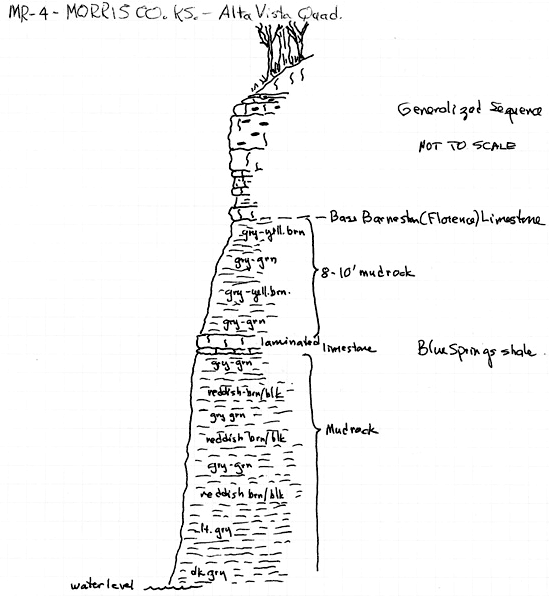 MR-4 - MORRIS CO. KS. - Alta Vista Quad.
Generalized Sequence
NOT TO SCALE
Base Barneston (Florence) Limestone
gry-yell.brn
gry-grn
8-10' mudrock
gry-yell.brn.
gry-grn
laminated limestone
Blue Springs shale
gry-grn
reddish-brn/blk
gry grn
reddish brn/blk
Mudrock
gry-grn
reddish brn/blk
lt. gry
dk. gry
water level